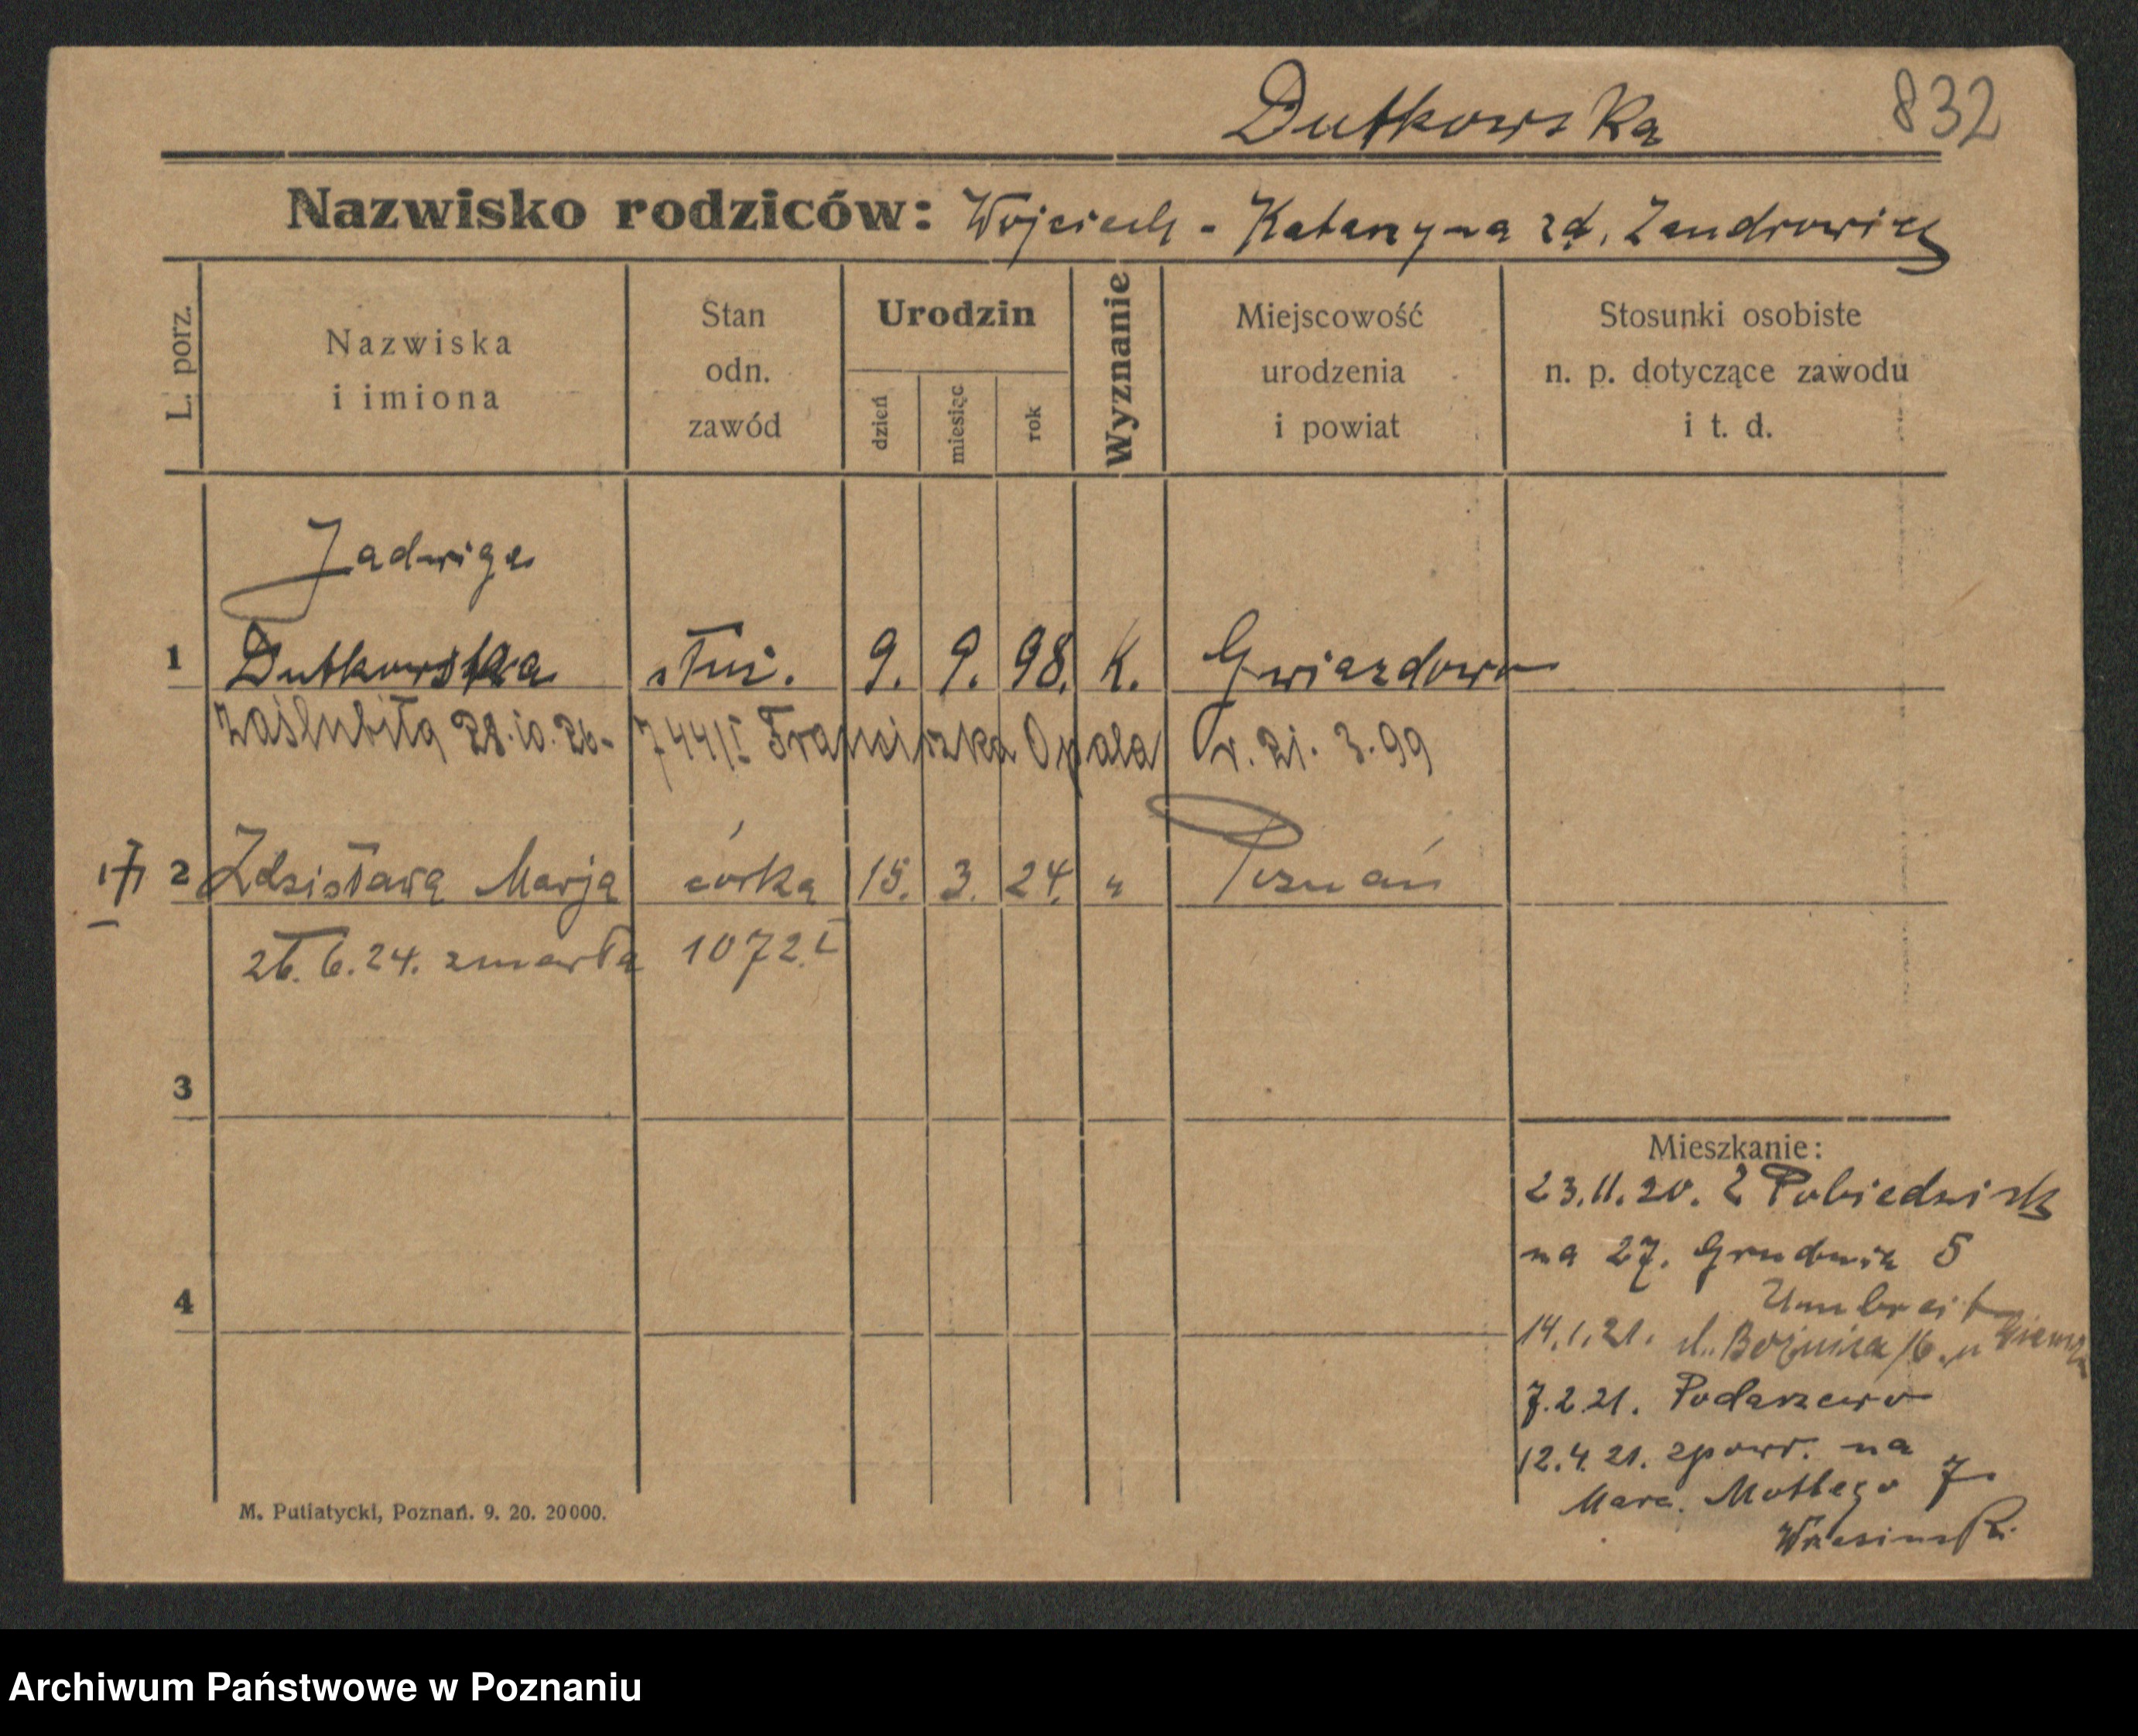 Dutkowska 832
Nazwisko rodziców: Wojciech - Katarzyna zd. Zandrowicz
L. porz.
Nazwiska i imiona
Stan odn. zawód
Urodzin
dzień miesiąc rok
Wyznanie
Miejscowość urodzenia i powiat
Stosunki osobiste n. p. dotyczące zawodu i t. d.
Jadwiga
1 Dutkowska służ. 9. 9. 98. K. Gwiazdowo
zaślubiła 28.10.26. 744/I Franciszka Opala Ur. 21. 3. 99
2 Zdzisława Marja córka 15. 3. 24. " Poznań
26. 6. 24. zmarła 1072.I
3
4
Mieszkanie:
23.11.20. Z Pobiedzisk
na 27. Grudnia 5
Umbreit
14.1.21. ul. Bożnicza 16. u
7.2.21. Podarzewo
12.4.21. zpowr. na
Marc. Mottego 7.
Wrzesinski
M. Putiatycki, Poznań. 9. 20. 20000.
Archiwum Państwowe w Poznaniu